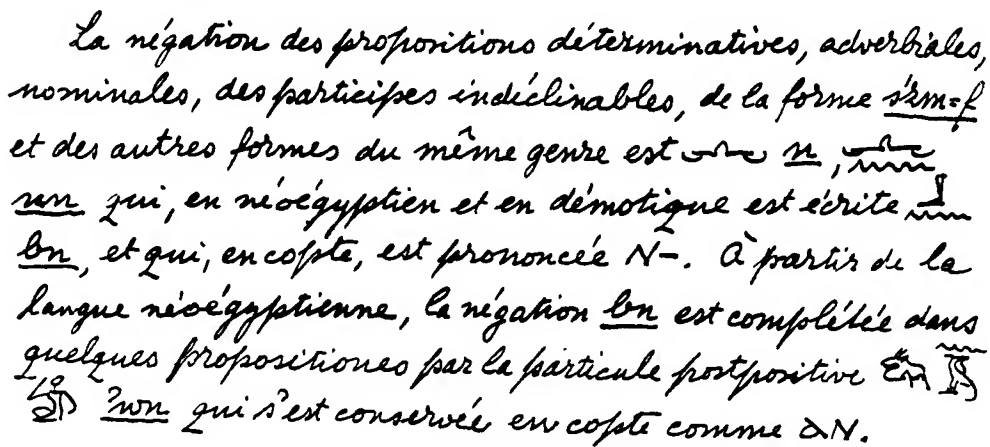 La négation des propositions déterminatives, adverbiales,
nominales, des participes indéclinables, de la forme śḏm=f
et des autres formes du même genre est 𓂜 n, 𓂜𓈖
nn qui, en néoégyptien et en démotique est écrite 𓃀𓈖
bn, et qui, en copte, est prononcée N-. À partir de la
langue néoégyptienne, la négation bn est complétée dans
quelques propositiones par la particule postpositive
qui s'est conservée en copte comme ⲁN.